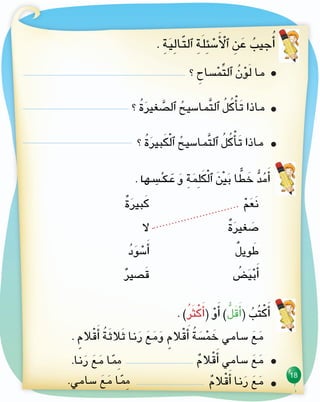 أُجيبُ عَنِ ٱلْأَسْئِلَةِ ٱلتّالِيَةِ .
ما لَوْنُ ٱلتِّمْساحِ ؟
ماذا تَأْكُلُ ٱلتَّماسيحُ ٱلصَّغيرَةُ ؟
ماذا تَأْكُلُ ٱلتَّماسيحُ ٱلْكَبيرَةُ ؟
أَمُدُّ خَطًّا بَيْنَ ٱلْكَلِمَةِ وَ عَكْسِها .
نَعَمْ كَبيرَةٌ
صَغيرَةٌ لا
طَويلٌ أَسْوَدُ
أَبْيَضُ قَصيرٌ
أَكْتُبُ (أَقَلُّ) أَوْ (أَكْثَرُ) .
مَعَ سامي خَمْسَةُ أَقْلامٍ وَمَعَ رَنا ثَلاثَةُ أَقْلامٍ .
مَعَ سامي أَقْلامٌ مِمّا مَعَ رَنا.
مَعَ رَنا أَقْلامٌ مِمّا مَعَ سامي.
18